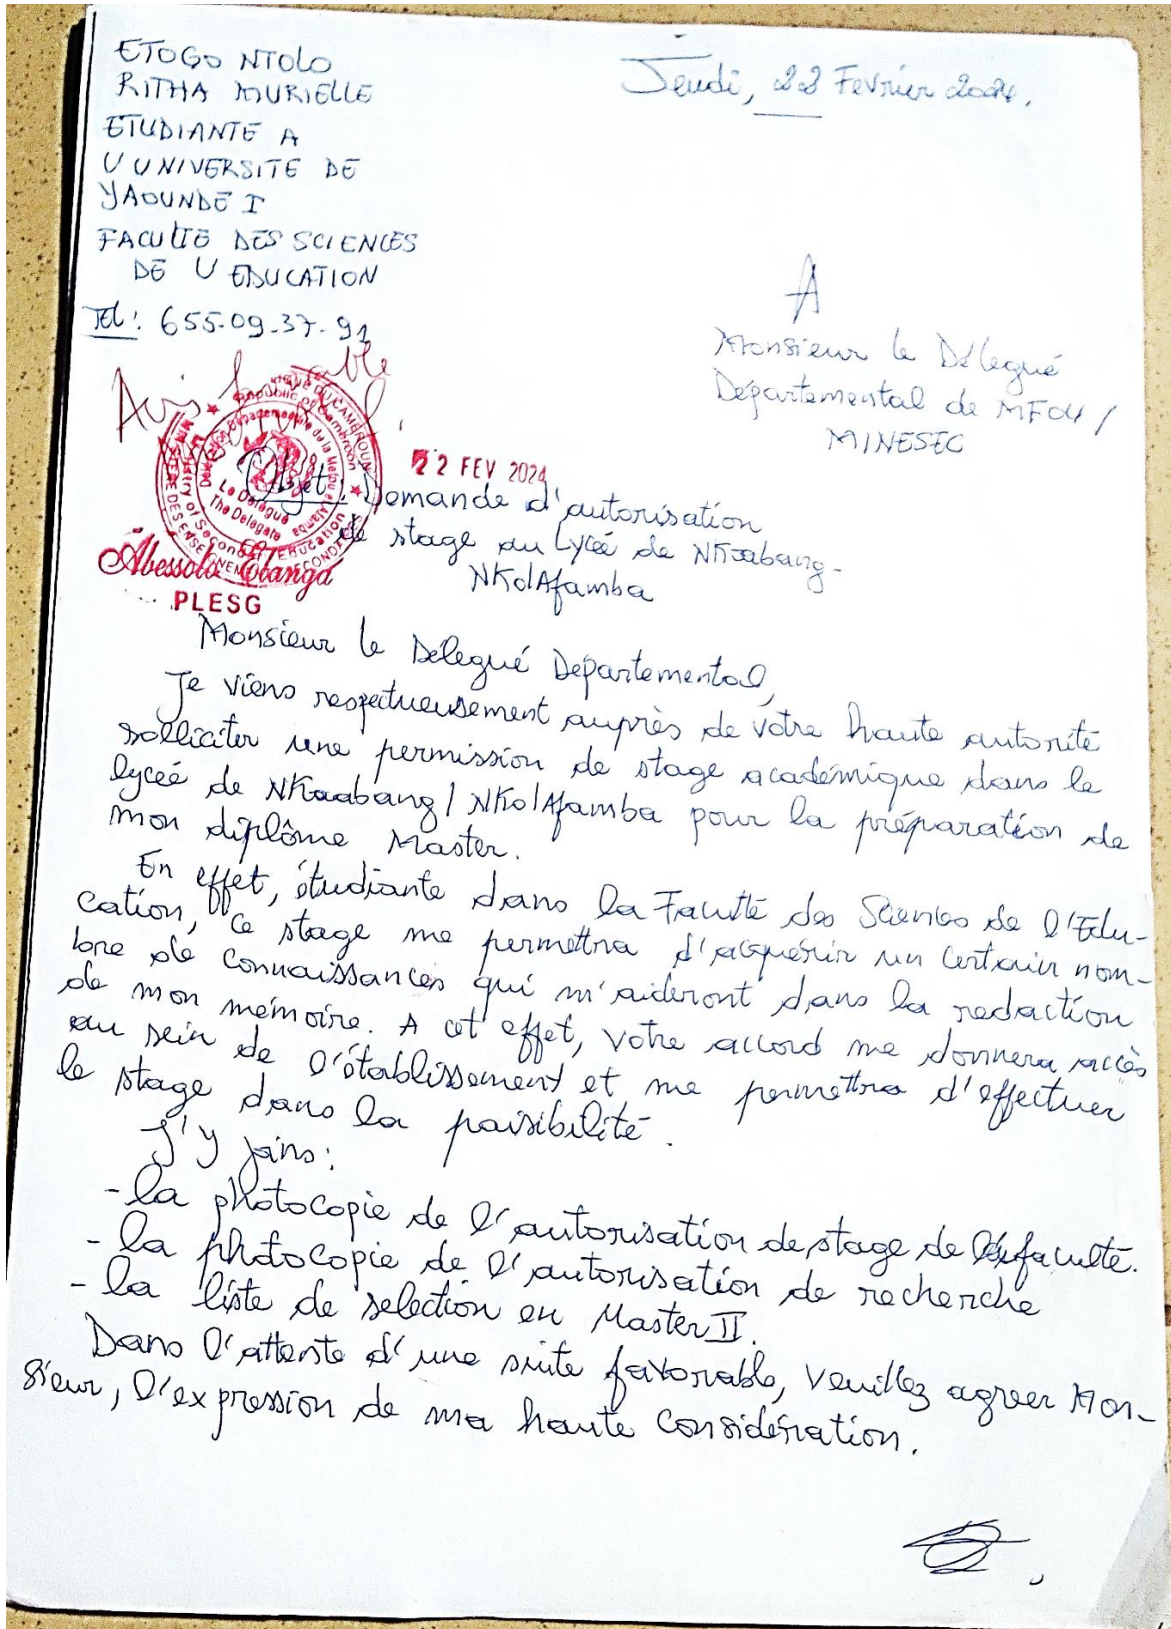 ETOGO NTOLO
RITHA MURIELLE
ETUDIANTE A
L'UNIVERSITE DE
YAOUNDE I
FACULTE DES SCIENCES
DE L'EDUCATION
Tel: 655-09-37-91
Jeudi, 22 Fevrier 2024.
A
Monsieur le Délegué
Départemental de MFOU /
MINESEC
Avis favorable
22 FEV 2024
Republic of Cameroon
Le Délégué
The Delegate
Abessolo Ebanga
PLESG
Objet: Demande d'autorisation
de stage au Lyceé de NKoabang-
NKolAfamba
Monsieur le Délegué Départemental,
Je viens respectueusement auprès de votre haute autorité
solliciter une permission de stage académique dans le
lyceé de NKoabang / NKolAfamba pour la préparation de
mon diplôme Master.
En effet, étudiante dans la Faculté des Sciences de l'Edu-
cation, ce stage me permettra d'acquérir un certain nom-
bre de connaissances qui m'aideront dans la redaction
de mon mémoire. A cet effet, votre accord me donnera accès
au sein de l'établissement et me permettra d'effectuer
le stage dans la paisibilité.
J'y joins:
- la photocopie de l'autorisation de stage de la faculté.
- la photocopie de l'autorisation de recherche
- la liste de selection en Master II.
Dans l'attente d'une suite favorable, veuillez agreer Mon-
sieur, l'expression de ma haute considération.